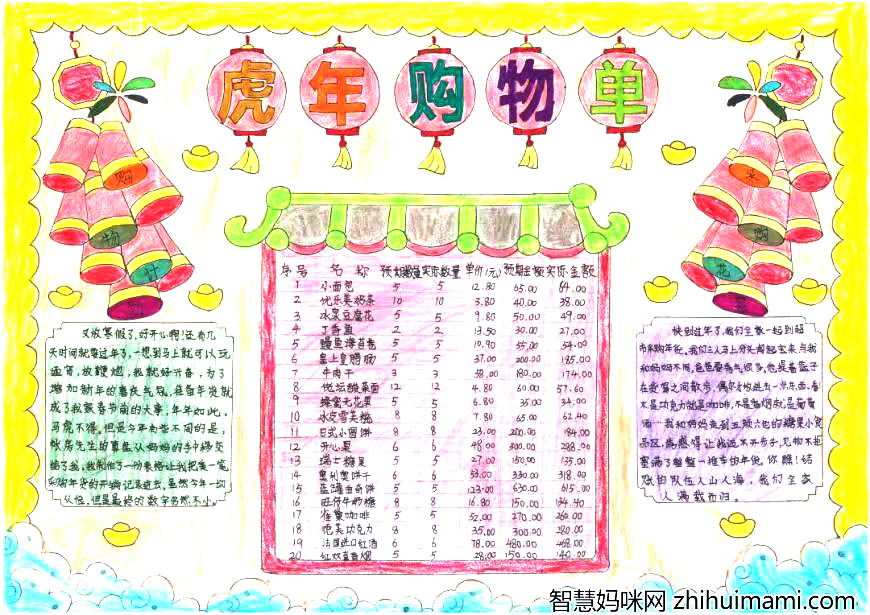 虎年购物单
购
物
计
划
采
购
花
序号 名称 预期数量 实际数量 单价(元) 预期金额 实际金额
1 小面包 5 5 12.80 65.00 64.00
2 优乐美奶茶 10 10 3.80 40.00 38.00
3 冰泉豆腐花 5 5 9.80 50.00 49.00
4 丁香鱼 2 2 13.50 30.00 27.00
5 鳗鱼海苔卷 5 5 10.90 55.00 54.00
6 皇上皇腊肠 5 5 37.00 200.00 185.00
7 牛肉干 3 3 58.00 180.00 174.00
8 老坛酸菜面 12 12 4.80 60.00 57.60
9 蜂蜜无花果 5 5 6.80 35 34.00
10 水定雪芙榄 8 8 7.80 65.00 62.40
11 日式小圆饼 8 8 23.00 200.00 184.00
12 开心果 6 6 48.00 300.00 288.00
13 瑞士糖果 5 5 27.00 150.00 135.00
14 奥利奥饼干 6 6 53.00 330.00 318.00
15 蓝罐曲奇饼 5 5 123.00 630.00 615.00
16 旺仔牛奶糖 8 8 16.80 150.00 134.40
17 雀巢咖啡 5 5 52.00 270.00 260.00
18 德芙功克力 8 8 35.00 300.00 280.00
19 法国进口红酒 6 6 78.00 480.00 468.00
20 红双喜香烟 5 5 28.00 150.00 140.00
又放寒假了,好开心啊!还有几
天时间就要过年了,一想到马上就可以玩
逛货,放鞭炮,我就好兴奋,为了
增加新年的喜庆气氛,准备年货就
成了我家春节前的大事,年年如此,
马虎不得。但是今年有些不同的是,
账房先生的重任从妈妈的手中移交
给了我,我制作了一份表格让我把每一笔
采购年货的开销记录进去,虽然今年一切
从俭,但是最终的数字仍然不小。
快到过年了,我们全家一起到超
市采购年货,我们三人马上分头背起宝来,与我
和妈妈不同,爸爸要省气很多,他提着篮子
在货架之间散步,偶尔才放进去一点东西,看
不是巧克力就是咖啡,不是香烟就是葡萄
酒,我和妈妈走到五颜六色的糖果小食
品区,诱惑得让我迈不开步子,兄何不把
塞满了整整一推车的年货。你瞧!结
账的队伍人山人海,我们全家
人满载而归。
智慧妈咪网 zhihuimami.com